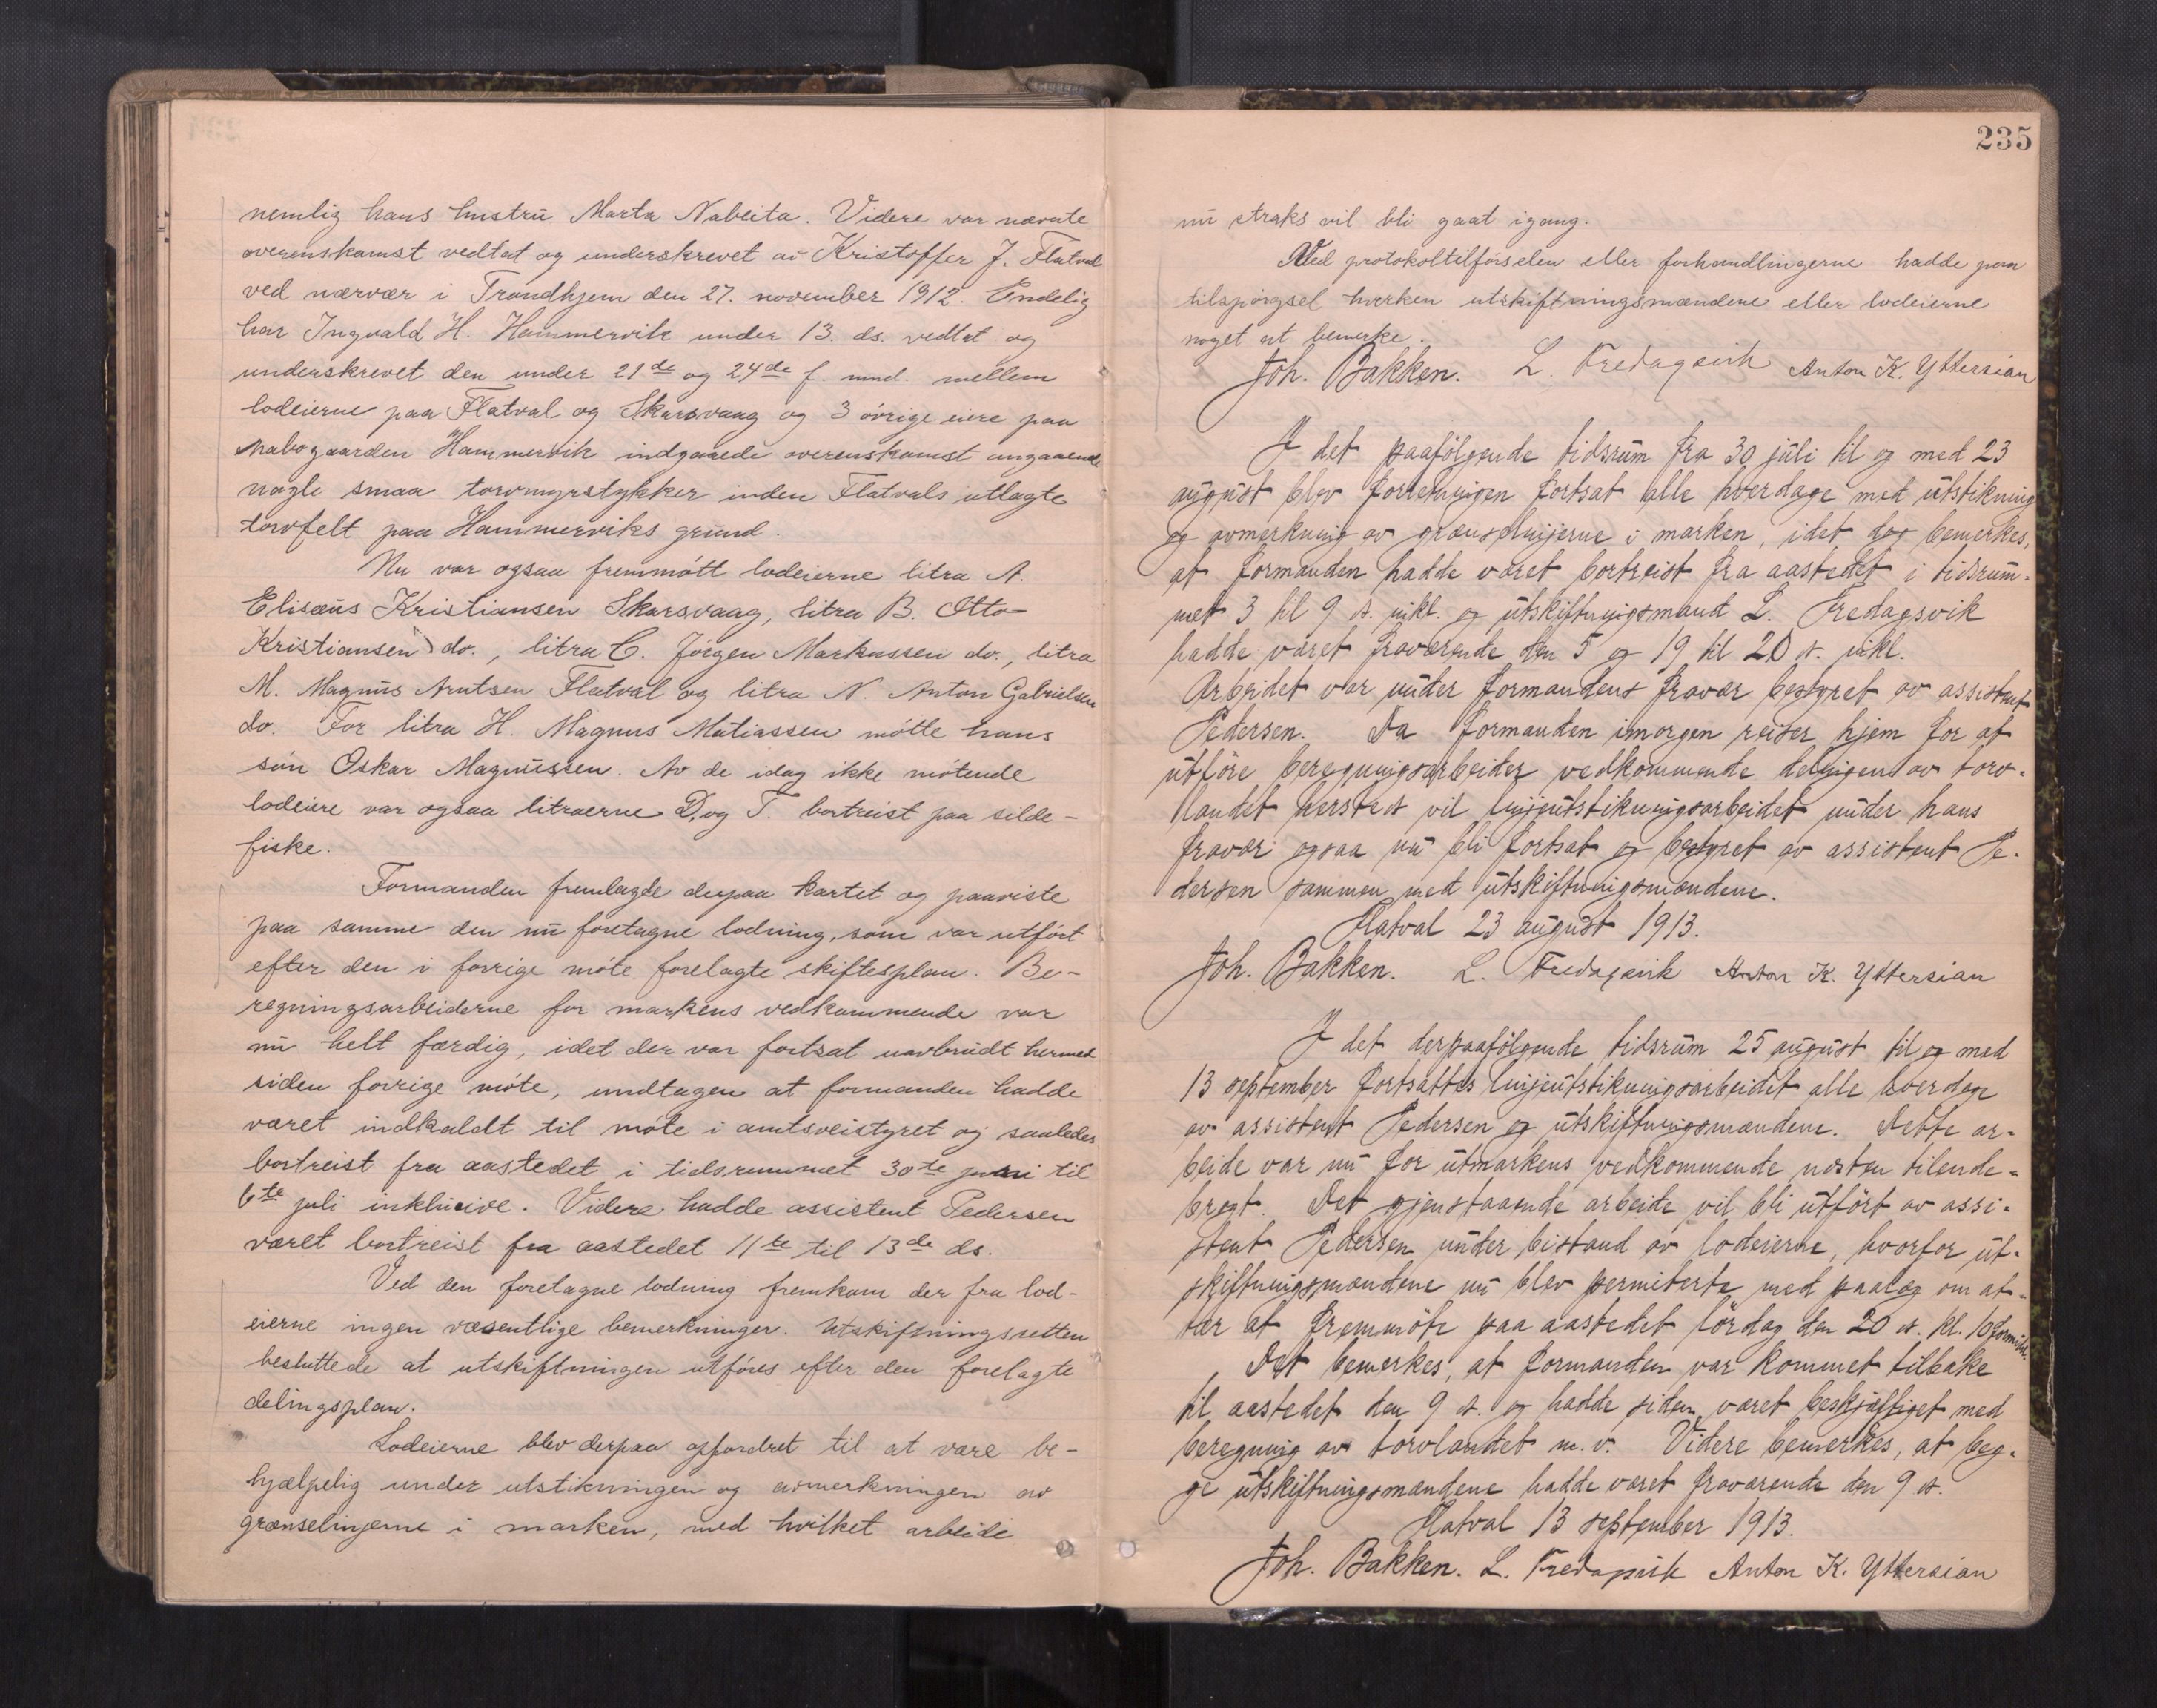 nemlig hans hustru Marta Nabeita. Videre var nævnte
overenskomst vedtat og underskrevet av Kristoffer J. Flatval
ved nærvær i Trondhjem den 27. november 1912. Endelig
har Ingvald H. Hammervik under 13. ds. vedtat og
underskrevet den under 21de og 24de f. mnd. mellem
lodeierne paa Flatval og Skarsvaag og 3 øvrige eiere paa
nabogaarden Hammervik indgaaede overenskomst angaaende
nogle smaa torvmyrstykker inden Flatvals utlagte
torvfelt paa Hammerviks grund.
Nu var ogsaa fremmøtt lodeierne litra A.
Elisæus Kristiansen Skarsvaag, litra B. Otto
Kristiansen do., litra C. Jørgen Markussen do., litra
M. Magnus Arntsen Flatval og litra N. Anton Gabrielsen
do. For litra H. Magnus Matiassen møtte hans
søn Oskar Magnussen. Av de idag ikke møtende
lodeiere var ogsaa litraerne D. og T. bortreist paa silde-
fiske.
Formanden fremlagde derpaa kartet og paaviste
paa samme den nu foretagne lodning, som var utført
efter den i forrige møte forelagte skiftesplan. Be-
regningsarbeiderne for markens vedkommende var
nu helt færdig, idet der var fortsat uavbrudt hermed
siden forrige møte, undtagen at formanden hadde
været indkaldt til møte i amtsveistyret og saaledes
bortreist fra aastedet i tidsrummet 30te juni til
6te juli inklusive. Videre hadde assistent Pedersen
været bortreist fra aastedet 11te til 13de ds.
Ved den foretagne lodning fremkom der fra lod-
eierne ingen væsentlige bemerkninger. Utskiftningsretten
besluttede at utskiftningen utføres efter den forelagte
delingsplan.
Lodeierne blev derpaa opfordret til at være be-
hjælpelig under utstikningen og avmerkningen av
grænselinjerne i marken, med hvilket arbeide
235
nu straks vil bli gaat igang.
Ved protokoltilførselen eller forhandlingerne hadde paa
tilspørgsel hverken utskiftningsmændene eller lodeierne
noget at bemerke.
Joh. Bakken. L. Fredagsvik Anton K. Yttersian
I det paafølgende tidsrum fra 30 juli til og med 23
august blev forretningen fortsat alle hverdage med utstikning
og avmerkning av grænselinjerne i marken, idet dog bemerkes,
at formanden hadde været bortreist fra aastedet i tidsrum-
met 3 til 9 ds. inkl. og utskiftningsmand L. Fredagsvik
hadde været fraværende den 5 og 19 til 20 ds. inkl.
Arbeidet var under formandens fravær bestyret av assistent
Pedersen. Da formanden imorgen reiser hjem for at
utføre beregningsarbeider vedkommende delingen av torv-
landet hersteds vil linjeutstikningsarbeidet under hans
fravær ogsaa nu bli fortsat og bestyret av assistent Pe-
dersen sammen med utskiftningsmændene.
Flatval 23 august 1913.
Joh. Bakken. L. Fredagsvik Anton K. Yttersian
I det derpaafølgende tidsrum 25 august til og med
13 september fortsattes linjeutstikningsarbeidet alle hverdage
av assistent Pedersen og utskiftningsmændene. Dette ar-
beide var nu for utmarkens vedkommende næsten tilende-
bragt. Det gjenstaaende arbeide vil bli utført av assi-
stent Pedersen under bistand av lodeierne, hvorfor ut-
skiftningsmændene nu blev permiterte med paalæg om at-
ter at fremmøte paa aastedet lørdag den 20 ds. kl. 10 formidd.
Det bemerkes, at formanden var kommet tilbake
til aastedet den 9 ds. og hadde siden været beskjæftiget med
beregning av torvlandet m. v. Videre bemerkes, at beg-
ge utskiftningsmændene hadde været fraværende den 9 ds.
Flatval 13 september 1913.
Joh. Bakken. L. Fredagsvik Anton K. Yttersian